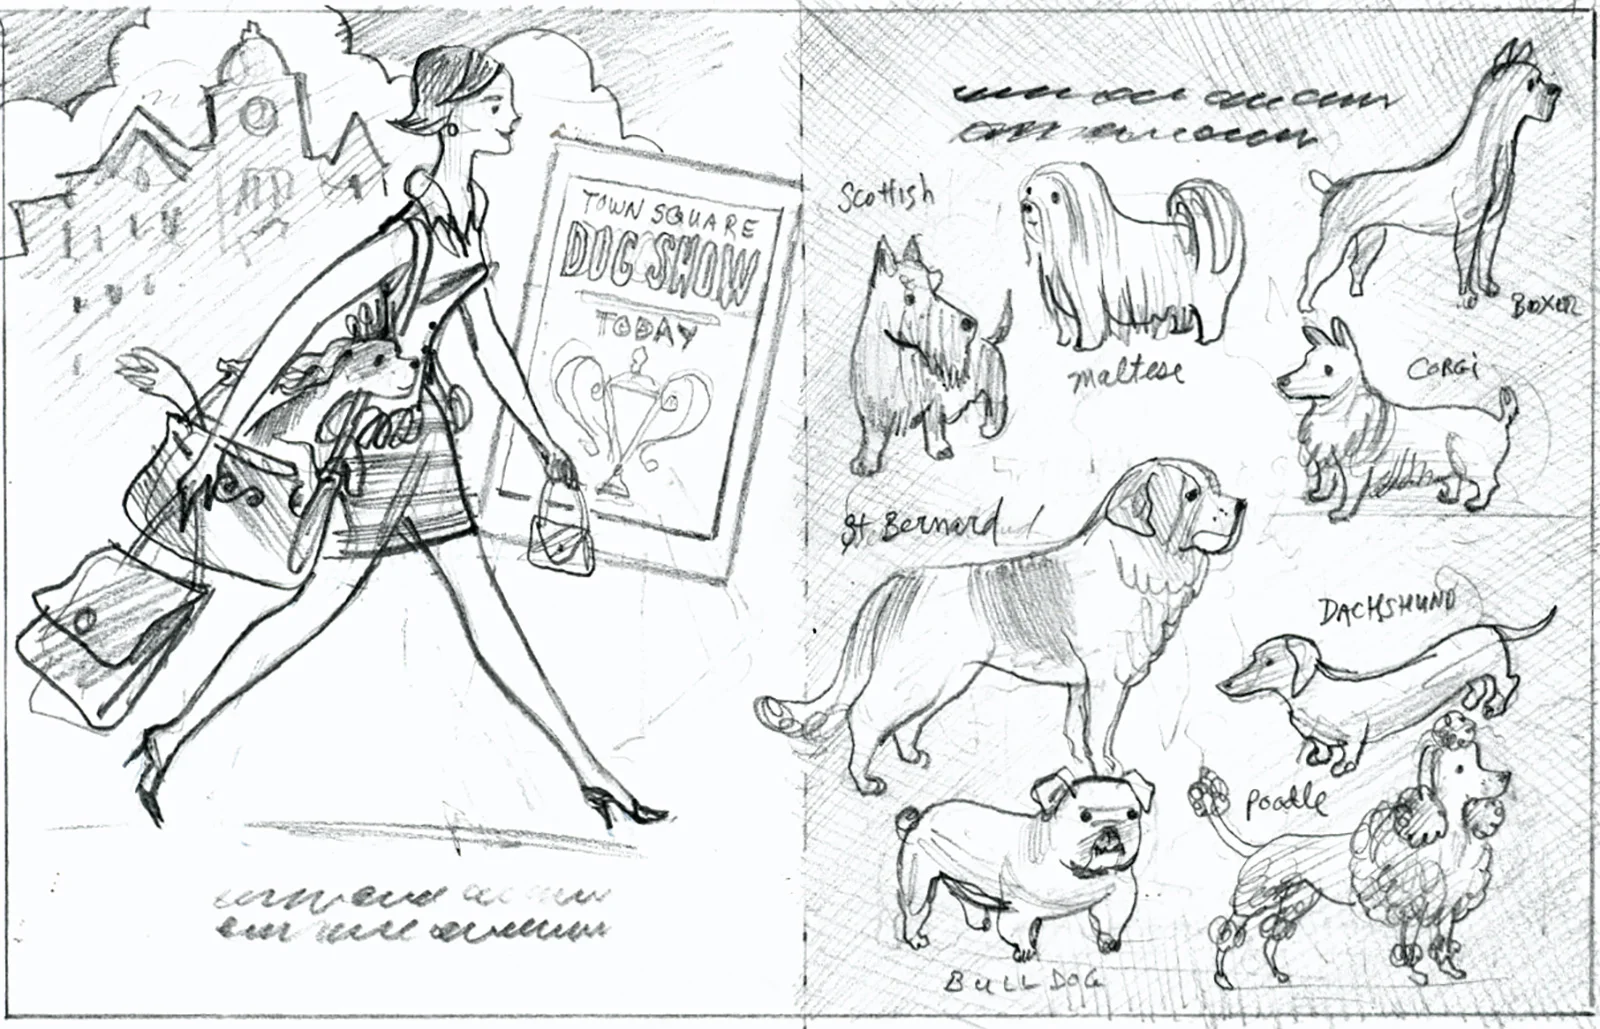 TOWN SQUARE
DOG SHOW
TODAY
Scottish
maltese
BOXER
CORGi
St. Bernard
DACHSHUND
poodle
BULLDOG